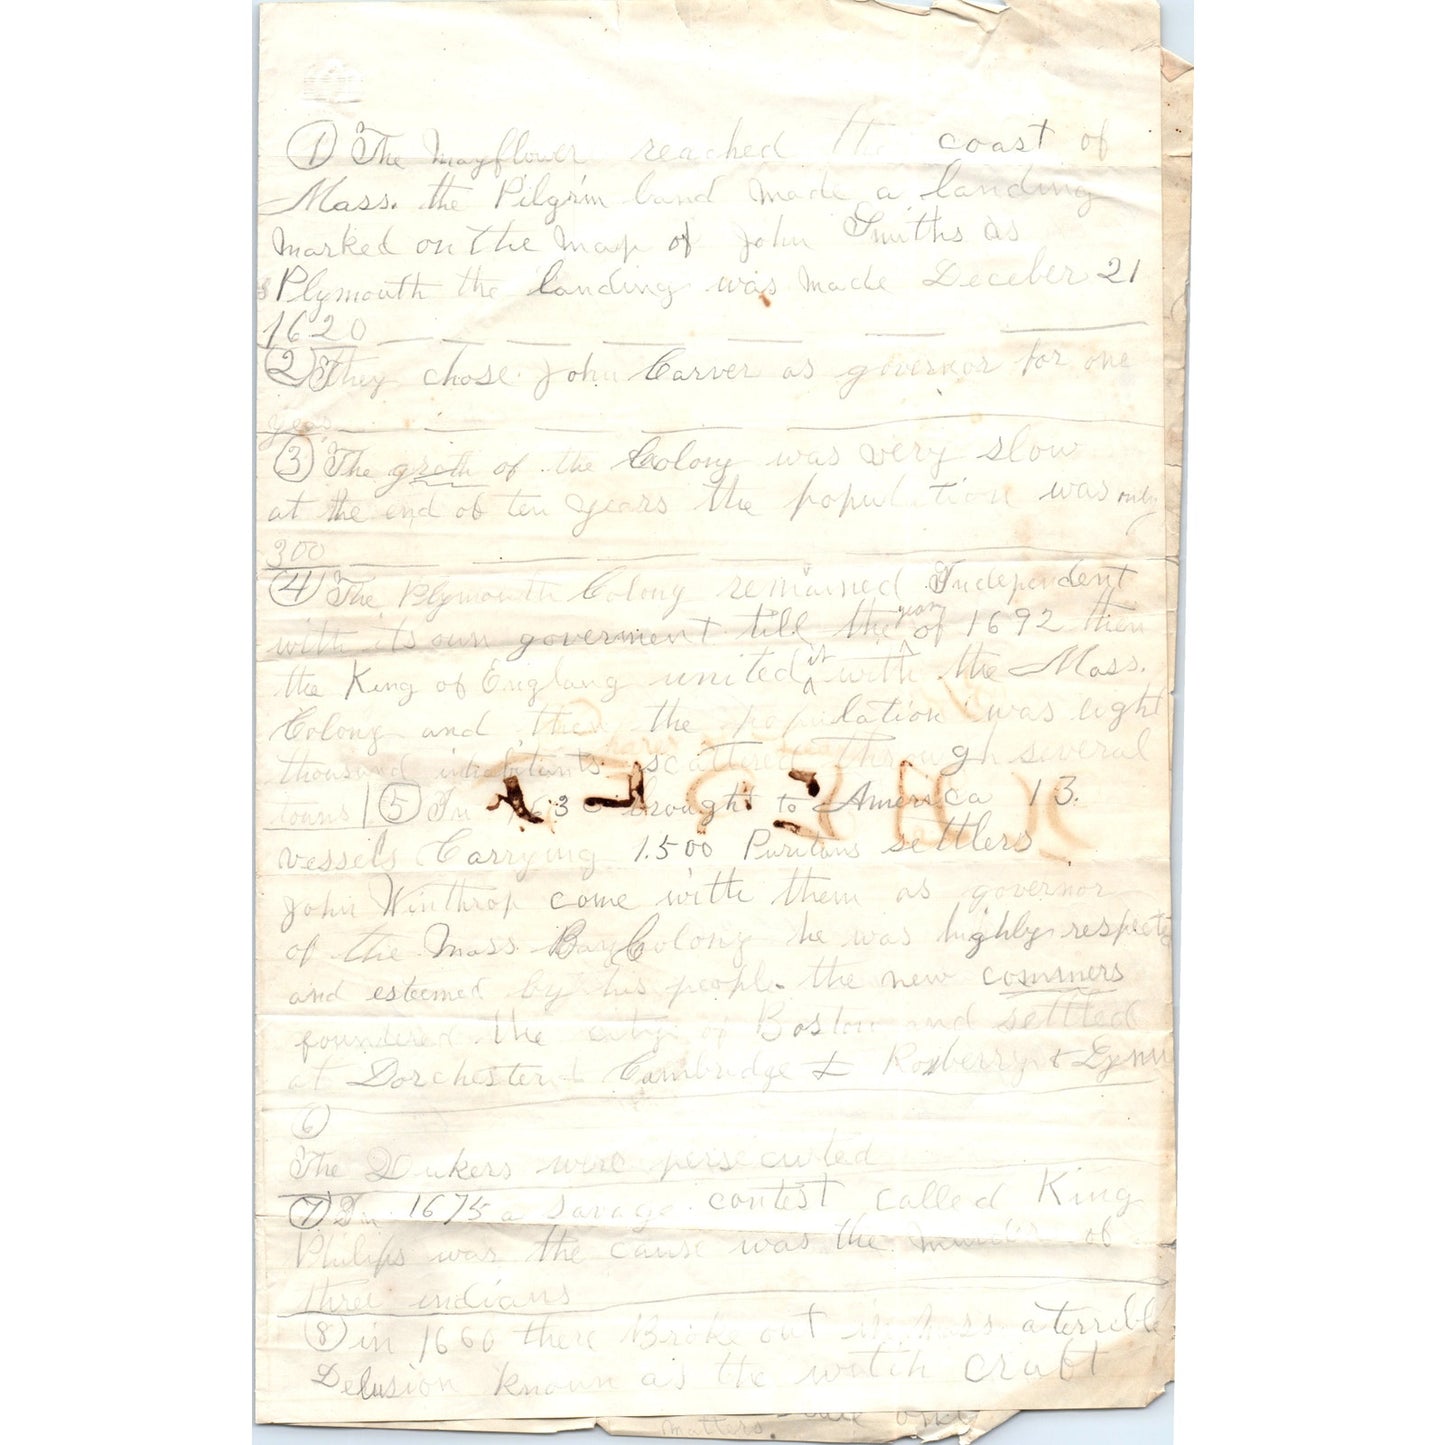 1) The Mayflower reached the coast of
Mass. the Pilgrim band made a landing
marked on the map of John Smiths as
Plymouth the landing was made Deceber 21
1620
2) They chose John Carver as governor for one
year
3) The groth of the Colony was very slow
at the end of ten years the population was only
300
4) The Plymouth Colony remained Independent
with its own goverment till the year of 1692 then
the King of Englang united it with the Mass.
Colony and then the population was eight
thousand inhabitants scattered through several
towns | 5) In 1630 brought to America 13.
vessels Carrying 1.500 Puritans settlers
John Winthrop come with them as governor
of the Mass Bay Colony he was highly respected
and esteemed by his people the new commers
foundered the city of Boston and settled
at Dorchester & Cambridge & Roxberry & Lynn
6)
The Quakers were persecuted
7) In 1675 a savage contest called King
Philips was the cause was the of
three indians
8) in 1660 there Broke out in Mass a terrible
Delusion known as the witch craft
matters. only